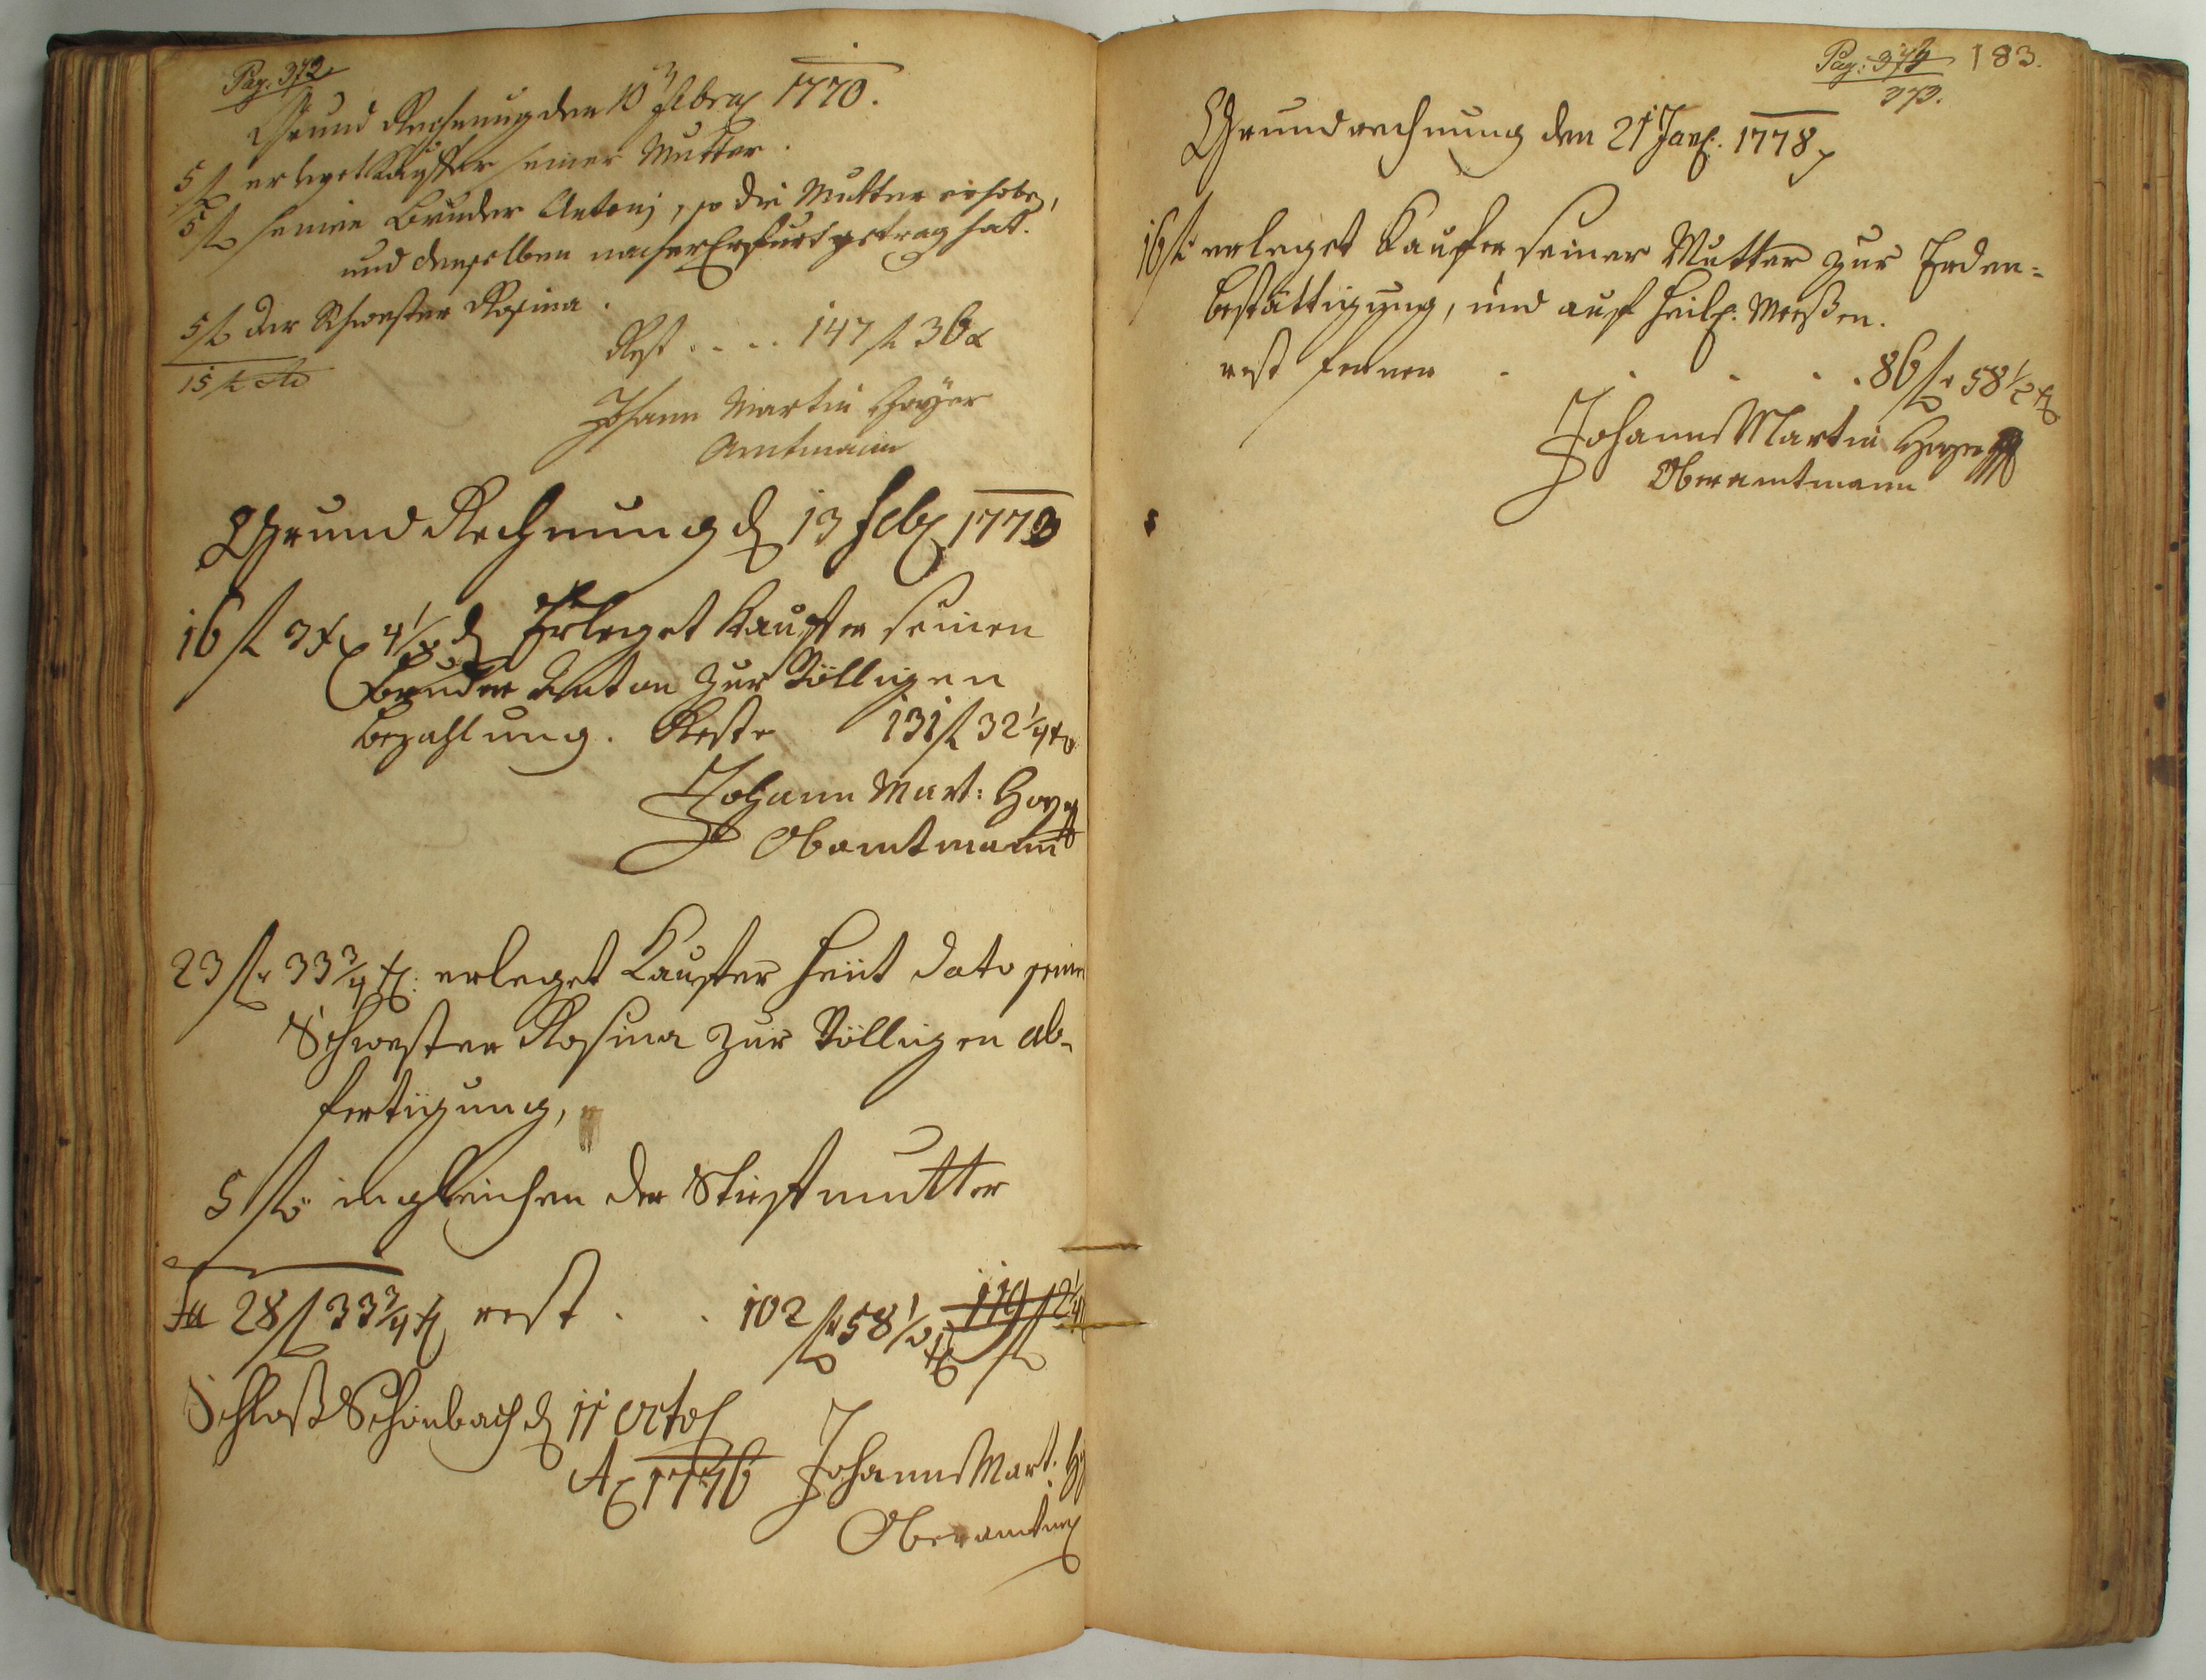 Pag: 372
Grund Rechnung den 10 Febrar 1770.
5 fl erleget Kauffer seiner Mutter.
5 fl seinen Bruder Antonj, so die Mutter erhoben,
und denselben nacher Erfurt getrag hat.
5 fl der Schwester Rosina.
15 fl
Rest .... 147 fl 36 x
Johann Martin Hoyer
Amtmann
Grund Rechnung d 13 Feb 1773
16 fl 3 x 4 1/2 d Erleget Kauffer seinen
Bruder Anton zur Völligen
bezahlung. Reste 131 fl 32 1/4 x
Johann Mart: Hoyer
Obamtmann
23 fl 33 3/4 x: erleget Kauffer heüt dato seiner
Schwester Rosina zur Völligen ab-
fertigung,
5 fl: ingleichen der Stiefmutter
28 fl 33 3/4 x rest . . 102 fl 58 1/2 x 119 fl 2 1/4
Schloß Schönbach d 11 Octob
A 1776 Johann Mart: H
Oberamtm
Pag: 374 183.
373.
Grundrechnung den 21 Jan: 1778
16 fl: erleget Kauffer seiner Mutter zur Erden-
bestättigung, und auf heil: Meeßen.
rest ferner . . . . . 86 fl 58 1/2 x
Johann Martin Hoyer
Oberamtmann